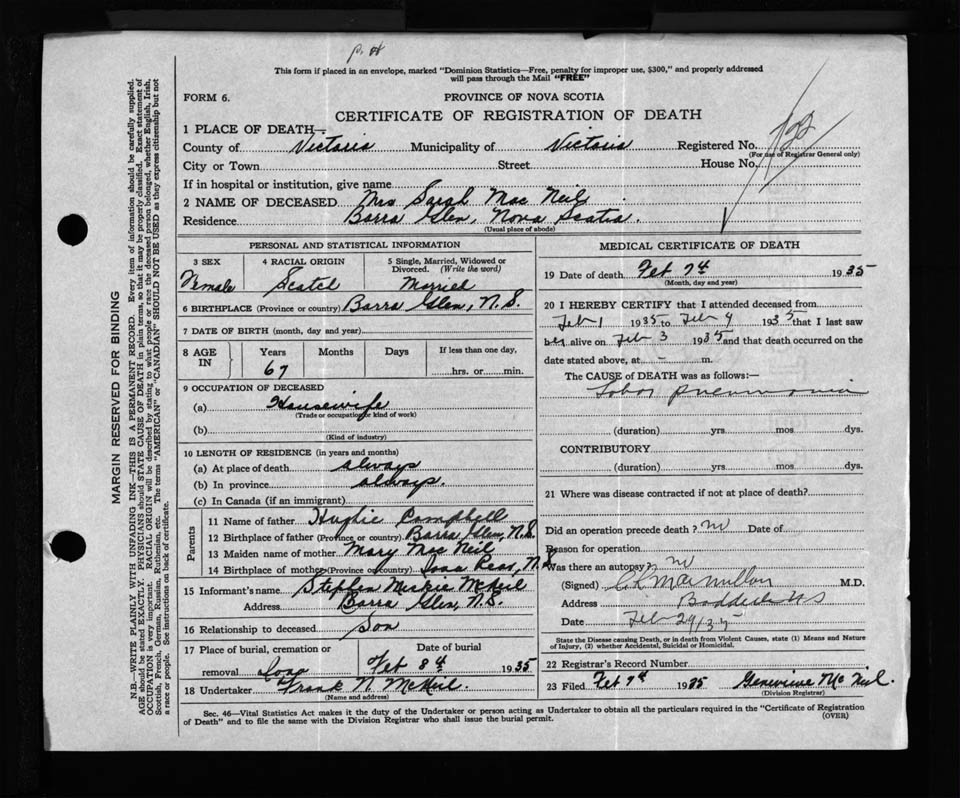 This form if placed in an envelope, marked "Dominion Statistics—Free, penalty for improper use, $300," and properly addressed
will pass through the Mail "FREE"
FORM 6.
PROVINCE OF NOVA SCOTIA
CERTIFICATE OF REGISTRATION OF DEATH
1 PLACE OF DEATH—
County of Victoria Municipality of Victoria Registered No.
(For use of Registrar General only)
City or Town Street House No.
If in hospital or institution, give name
2 NAME OF DECEASED Mrs Sarah Mac Neil
Residence Barra Glen, Nova Scotia.
(Usual place of abode)
PERSONAL AND STATISTICAL INFORMATION
3 SEX
Female
4 RACIAL ORIGIN
Scotch
5 Single, Married, Widowed or
Divorced. (Write the word)
Married
6 BIRTHPLACE (Province or country) Barra Glen, N.S.
7 DATE OF BIRTH (month, day and year)
8 AGE
IN
Years
67
Months
Days
If less than one day,
hrs. or min.
9 OCCUPATION OF DECEASED
(a) Housewife
(Trade or occupation or kind of work)
(b)
(Kind of industry)
10 LENGTH OF RESIDENCE (in years and months)
(a) At place of death always
(b) In province always.
(c) In Canada (if an immigrant)
Parents
11 Name of father Hughie Campbell
12 Birthplace of father (Province or country) Barra Glen, N.S.
13 Maiden name of mother Mary Mac Neil
14 Birthplace of mother (Province or country) Iona Rear, N.S.
15 Informant's name Stephen McNeil
Address Barra Glen, N.S.
16 Relationship to deceased Son
17 Place of burial, cremation or
removal Iona
Date of burial
Feb 8th 1935
18 Undertaker Frank N. McNeil.
(Name and address)
MEDICAL CERTIFICATE OF DEATH
19 Date of death Feb 7th 1935
(Month, day and year)
20 I HEREBY CERTIFY that I attended deceased from
Feb 1 1935 to Feb 4 1935 that I last saw
her alive on Feb 3 1935 and that death occurred on the
date stated above, at - m.
The CAUSE of DEATH was as follows:—
Lobar pneumonia
(duration) yrs. mos. dys.
CONTRIBUTORY
(duration) yrs. mos. dys.
21 Where was disease contracted if not at place of death?
Did an operation precede death? no Date of
Reason for operation
Was there an autopsy? no
(Signed) C L MacMillan M.D.
Address Baddeck N S
Date Feb 29/35
State the Disease causing Death, or in death from Violent Causes, state (1) Means and Nature
of Injury, (2) whether Accidental, Suicidal or Homicidal.
22 Registrar's Record Number
23 Filed Feb 7th 1935 Genevieve Mc Neil.
(Division Registrar)
Sec. 46—Vital Statistics Act makes it the duty of the Undertaker or person acting as Undertaker to obtain all the particulars required in the "Certificate of Registration
of Death" and to file the same with the Division Registrar who shall issue the burial permit.
(OVER)
MARGIN RESERVED FOR BINDING
N.B.—WRITE PLAINLY WITH UNFADING INK—THIS IS A PERMANENT RECORD. Every item of information should be carefully supplied.
AGE should be stated EXACTLY. PHYSICIANS should STATE CAUSE OF DEATH in plain terms, so that it may be properly classified. Exact statement of
OCCUPATION is very important. RACIAL ORIGIN will be described by stating to what people or race the deceased person belonged, whether English, Irish,
Scottish, French, German, Russian, Ruthenian, etc. The terms "AMERICAN" or "CANADIAN" SHOULD NOT BE USED as they express citizenship but not
a race or people. See instructions on back of certificate.